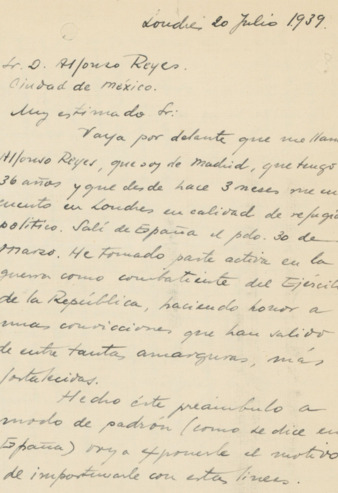 Londres 20 Julio 1939.
Sr. D. Alfonso Reyes.
Ciudad de México.
Muy estimado Sr:
Vaya por delante que me llam
Alfonso Reyes, que soy de Madrid, que tengo
36 años y que desde hace 3 meses me en
cuento en Londres en calidad de refugia
político. Salí de España el pdo. 30 de
Marzo. He tomado parte activa en la
guerra como combatiente del Ejércit
de la República, haciendo honor a
unas convicciones que han salido
de entre tantas amarguras, más
fortalecidas.
Hecho éste preámbulo a
modo de padrón (como se dice en
España) voy a exponerle el motivo
de importunarle con estas lineas.